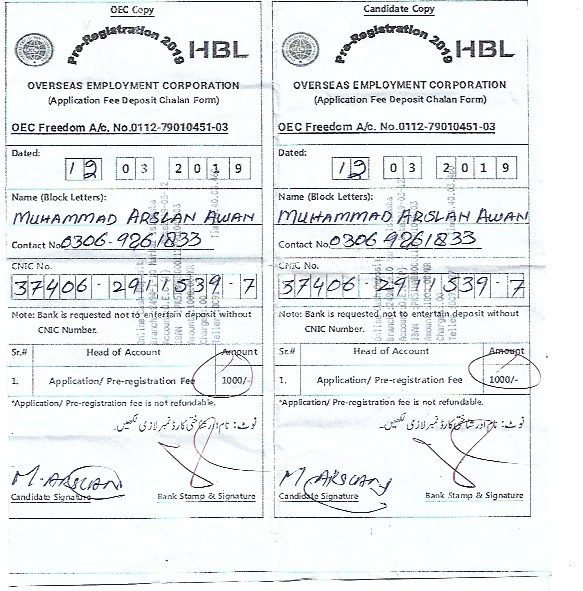 OEC Copy
Pre-Registration 2019
HBL
OVERSEAS EMPLOYMENT CORPORATION
(Application Fee Deposit Chalan Form)
OEC Freedom A/c. No.0112-79010451-03
Dated:
12 03 2019
Name (Block Letters):
MUHAMMAD ARSLAN AWAN
Contact No. 0306-9261833
CNIC No.
37406-2911539-7
Note: Bank is requested not to entertain deposit without
CNIC Number.
Sr.# Head of Account Amount
1. Application/ Pre-registration Fee 1000/-
*Application/ Pre-registration fee is not refundable.
نوٹ: نام اور شناختی کارڈ نمبر لازمی لکھیں۔
M. ARSLAN
Candidate Signature Bank Stamp & Signature
Candidate Copy
Pre-Registration 2019
HBL
OVERSEAS EMPLOYMENT CORPORATION
(Application Fee Deposit Chalan Form)
OEC Freedom A/c. No.0112-79010451-03
Dated:
12 03 2019
Name (Block Letters):
MUHAMMAD ARSLAN AWAN
Contact No. 0306 9261833
CNIC No.
37406-2911539-7
Note: Bank is requested not to entertain deposit without
CNIC Number.
Sr.# Head of Account Amount
1. Application/ Pre-registration Fee 1000/-
*Application/ Pre-registration fee is not refundable.
نوٹ: نام اور شناختی کارڈ نمبر لازمی لکھیں۔
M. ARSLAN
Candidate Signature Bank Stamp & Signature